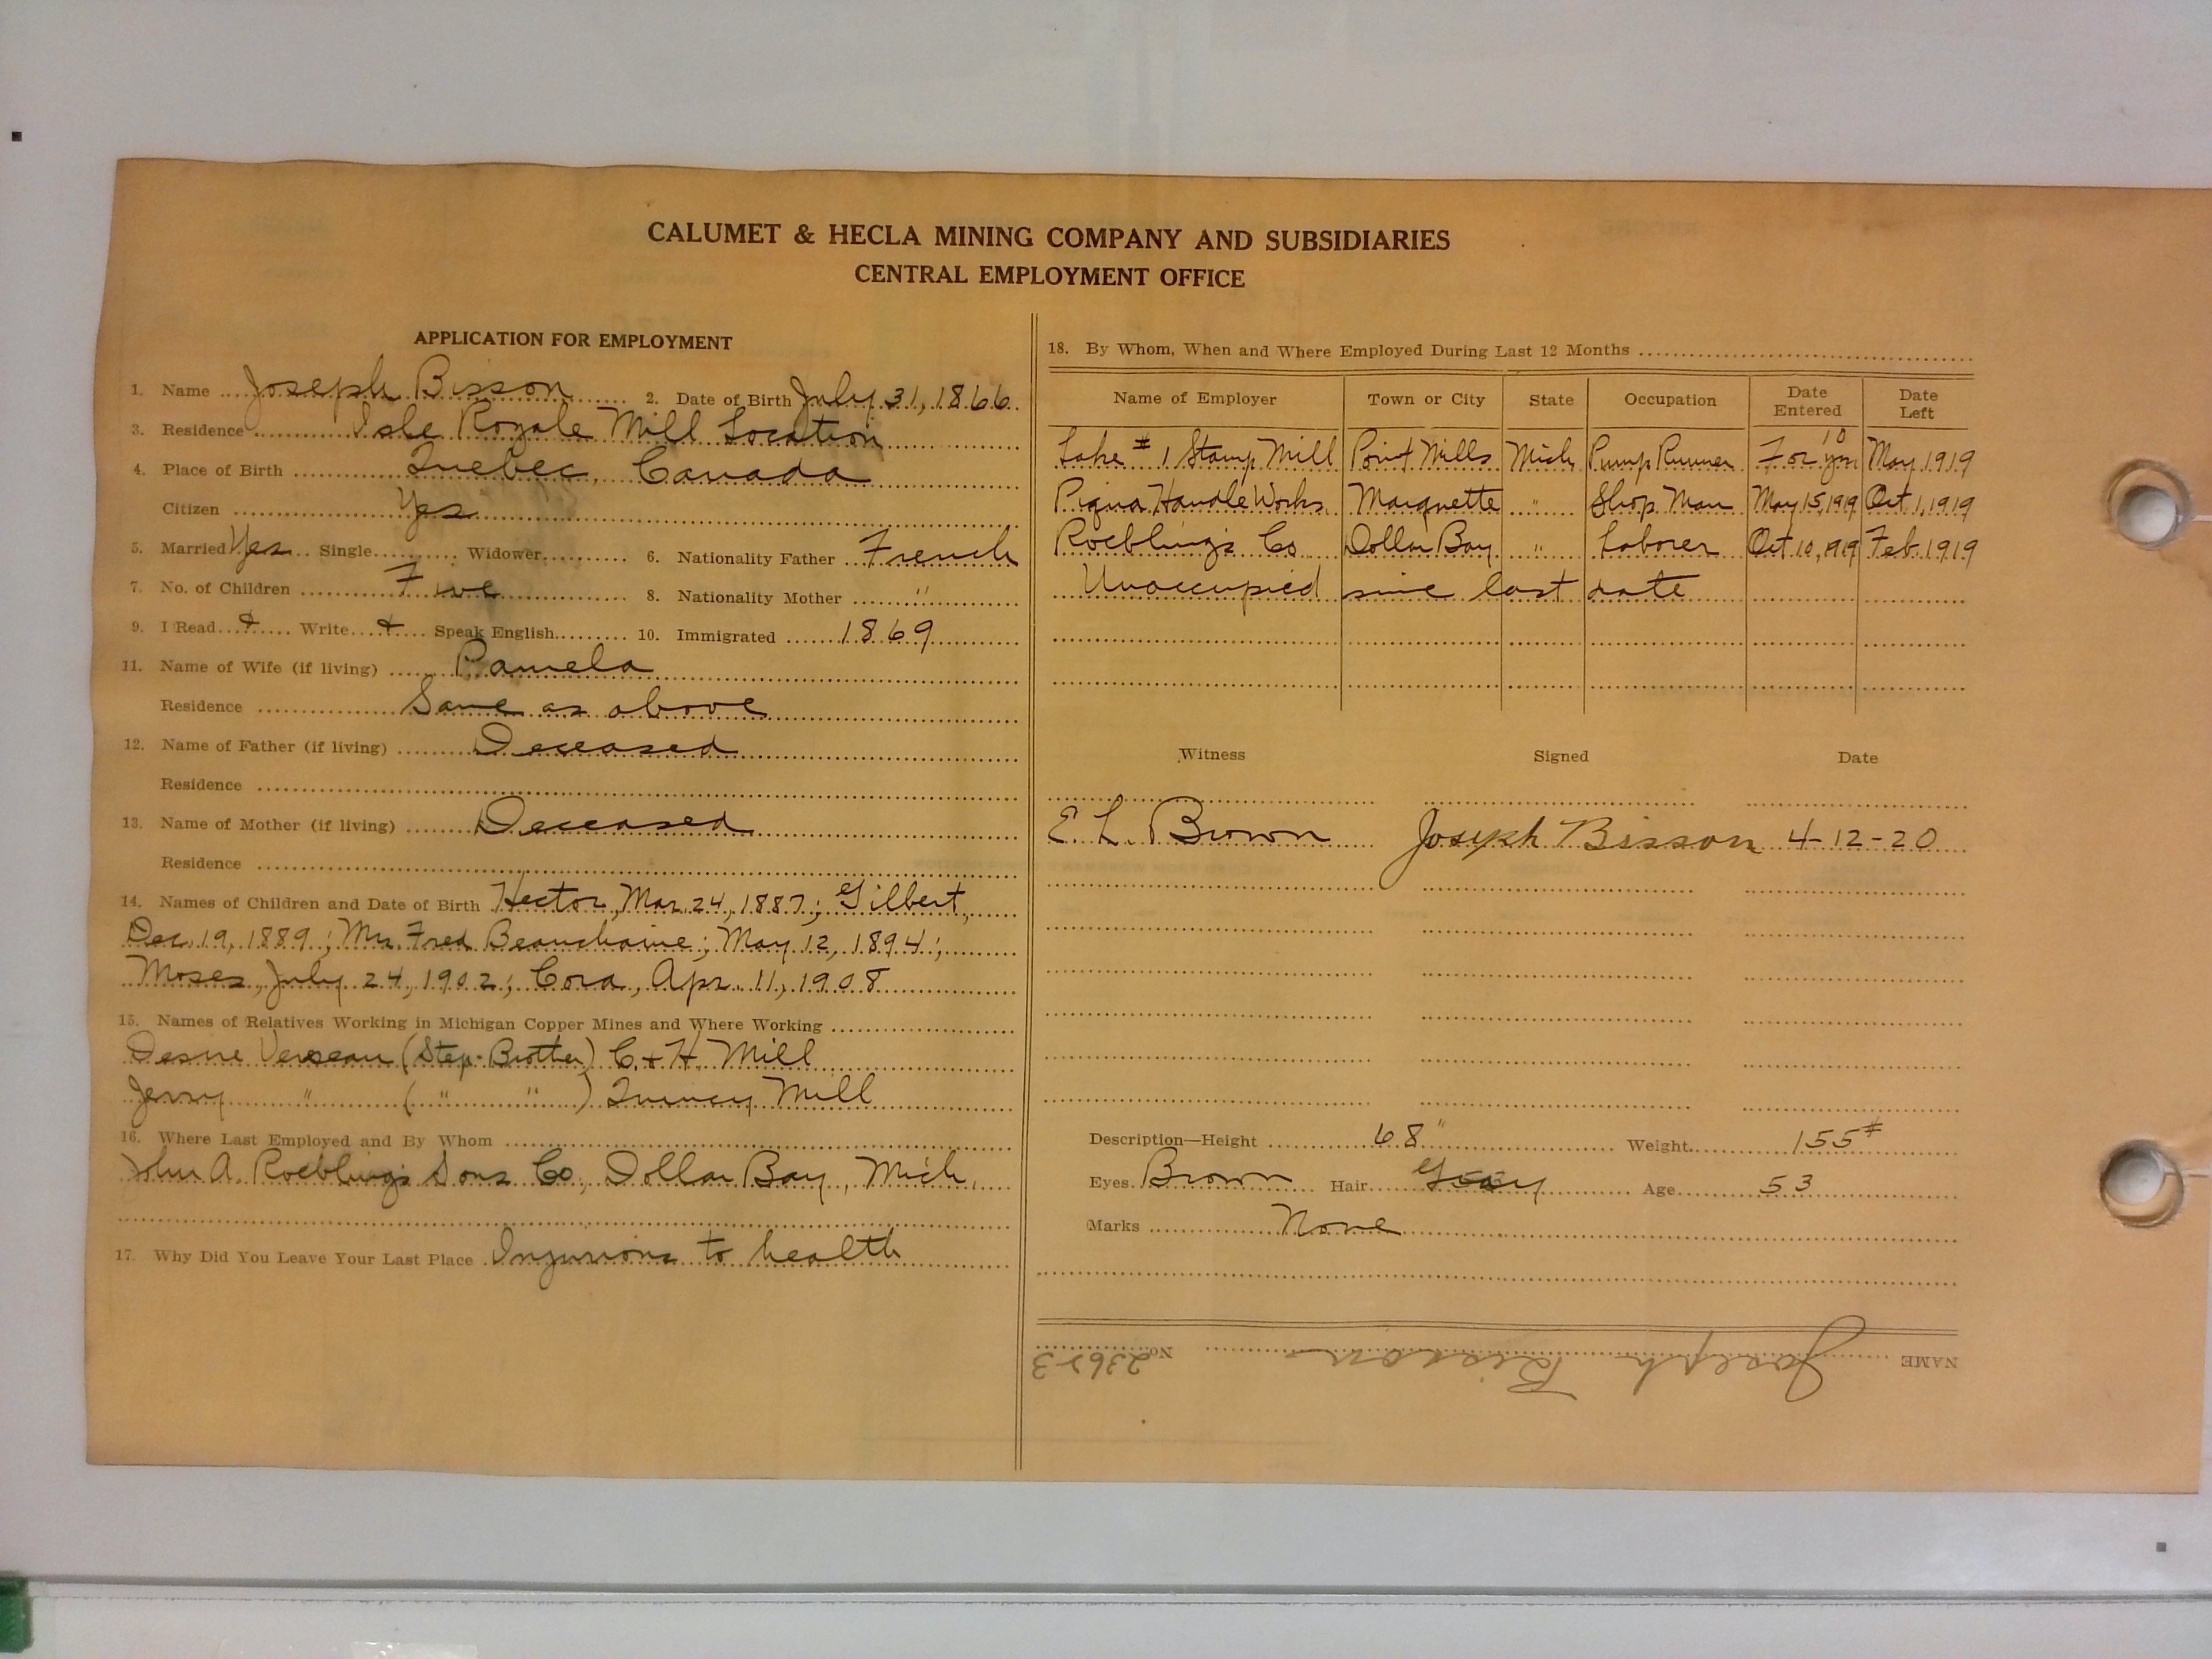 CALUMET & HECLA MINING COMPANY AND SUBSIDIARIES
CENTRAL EMPLOYMENT OFFICE
APPLICATION FOR EMPLOYMENT
1. Name Joseph Bisson 2. Date of Birth July 31, 1866
3. Residence Isle Royale Mill Location
4. Place of Birth Quebec, Canada
Citizen Yes
5. Married Yes Single Widower 6. Nationality Father French
7. No. of Children Five 8. Nationality Mother "
9. I Read & Write & Speak English 10. Immigrated 1869
11. Name of Wife (if living) Pamela
Residence Same as above
12. Name of Father (if living) Deceased
Residence
13. Name of Mother (if living) Deceased
Residence
14. Names of Children and Date of Birth Hector, Mar. 24, 1887; Gilbert,
Dec. 19, 1889; Mrs. Fred Beauchaine; May 12, 1894;
Moses, July 24, 1902; Cora, Apr. 11, 1908
15. Names of Relatives Working in Michigan Copper Mines and Where Working
(Step-Brother) C. & H. Mill
Jerry " ( " " ) Quincy Mill
16. Where Last Employed and By Whom
John A. Roebling's Sons Co., Dollar Bay, Mich.
17. Why Did You Leave Your Last Place Injurious to health
18. By Whom, When and Where Employed During Last 12 Months
Name of Employer Town or City State Occupation Date Entered Date Left
Lake # 1 Stamp Mill Point Mills Mich Pump Runner For 10 yrs May 1919
Piqua Handle Works Marquette " Shop Man May 15, 1919 Oct 1, 1919
Roebling's Co Dollar Bay " Laborer Oct 10, 1919 Feb. 1919
Unoccupied since last date
Witness Signed Date
E. L. Brown Joseph Bisson 4-12-20
Description—Height 68" Weight 155#
Eyes Brown Hair Gray Age 53
Marks None
NAME Joseph Bisson No.